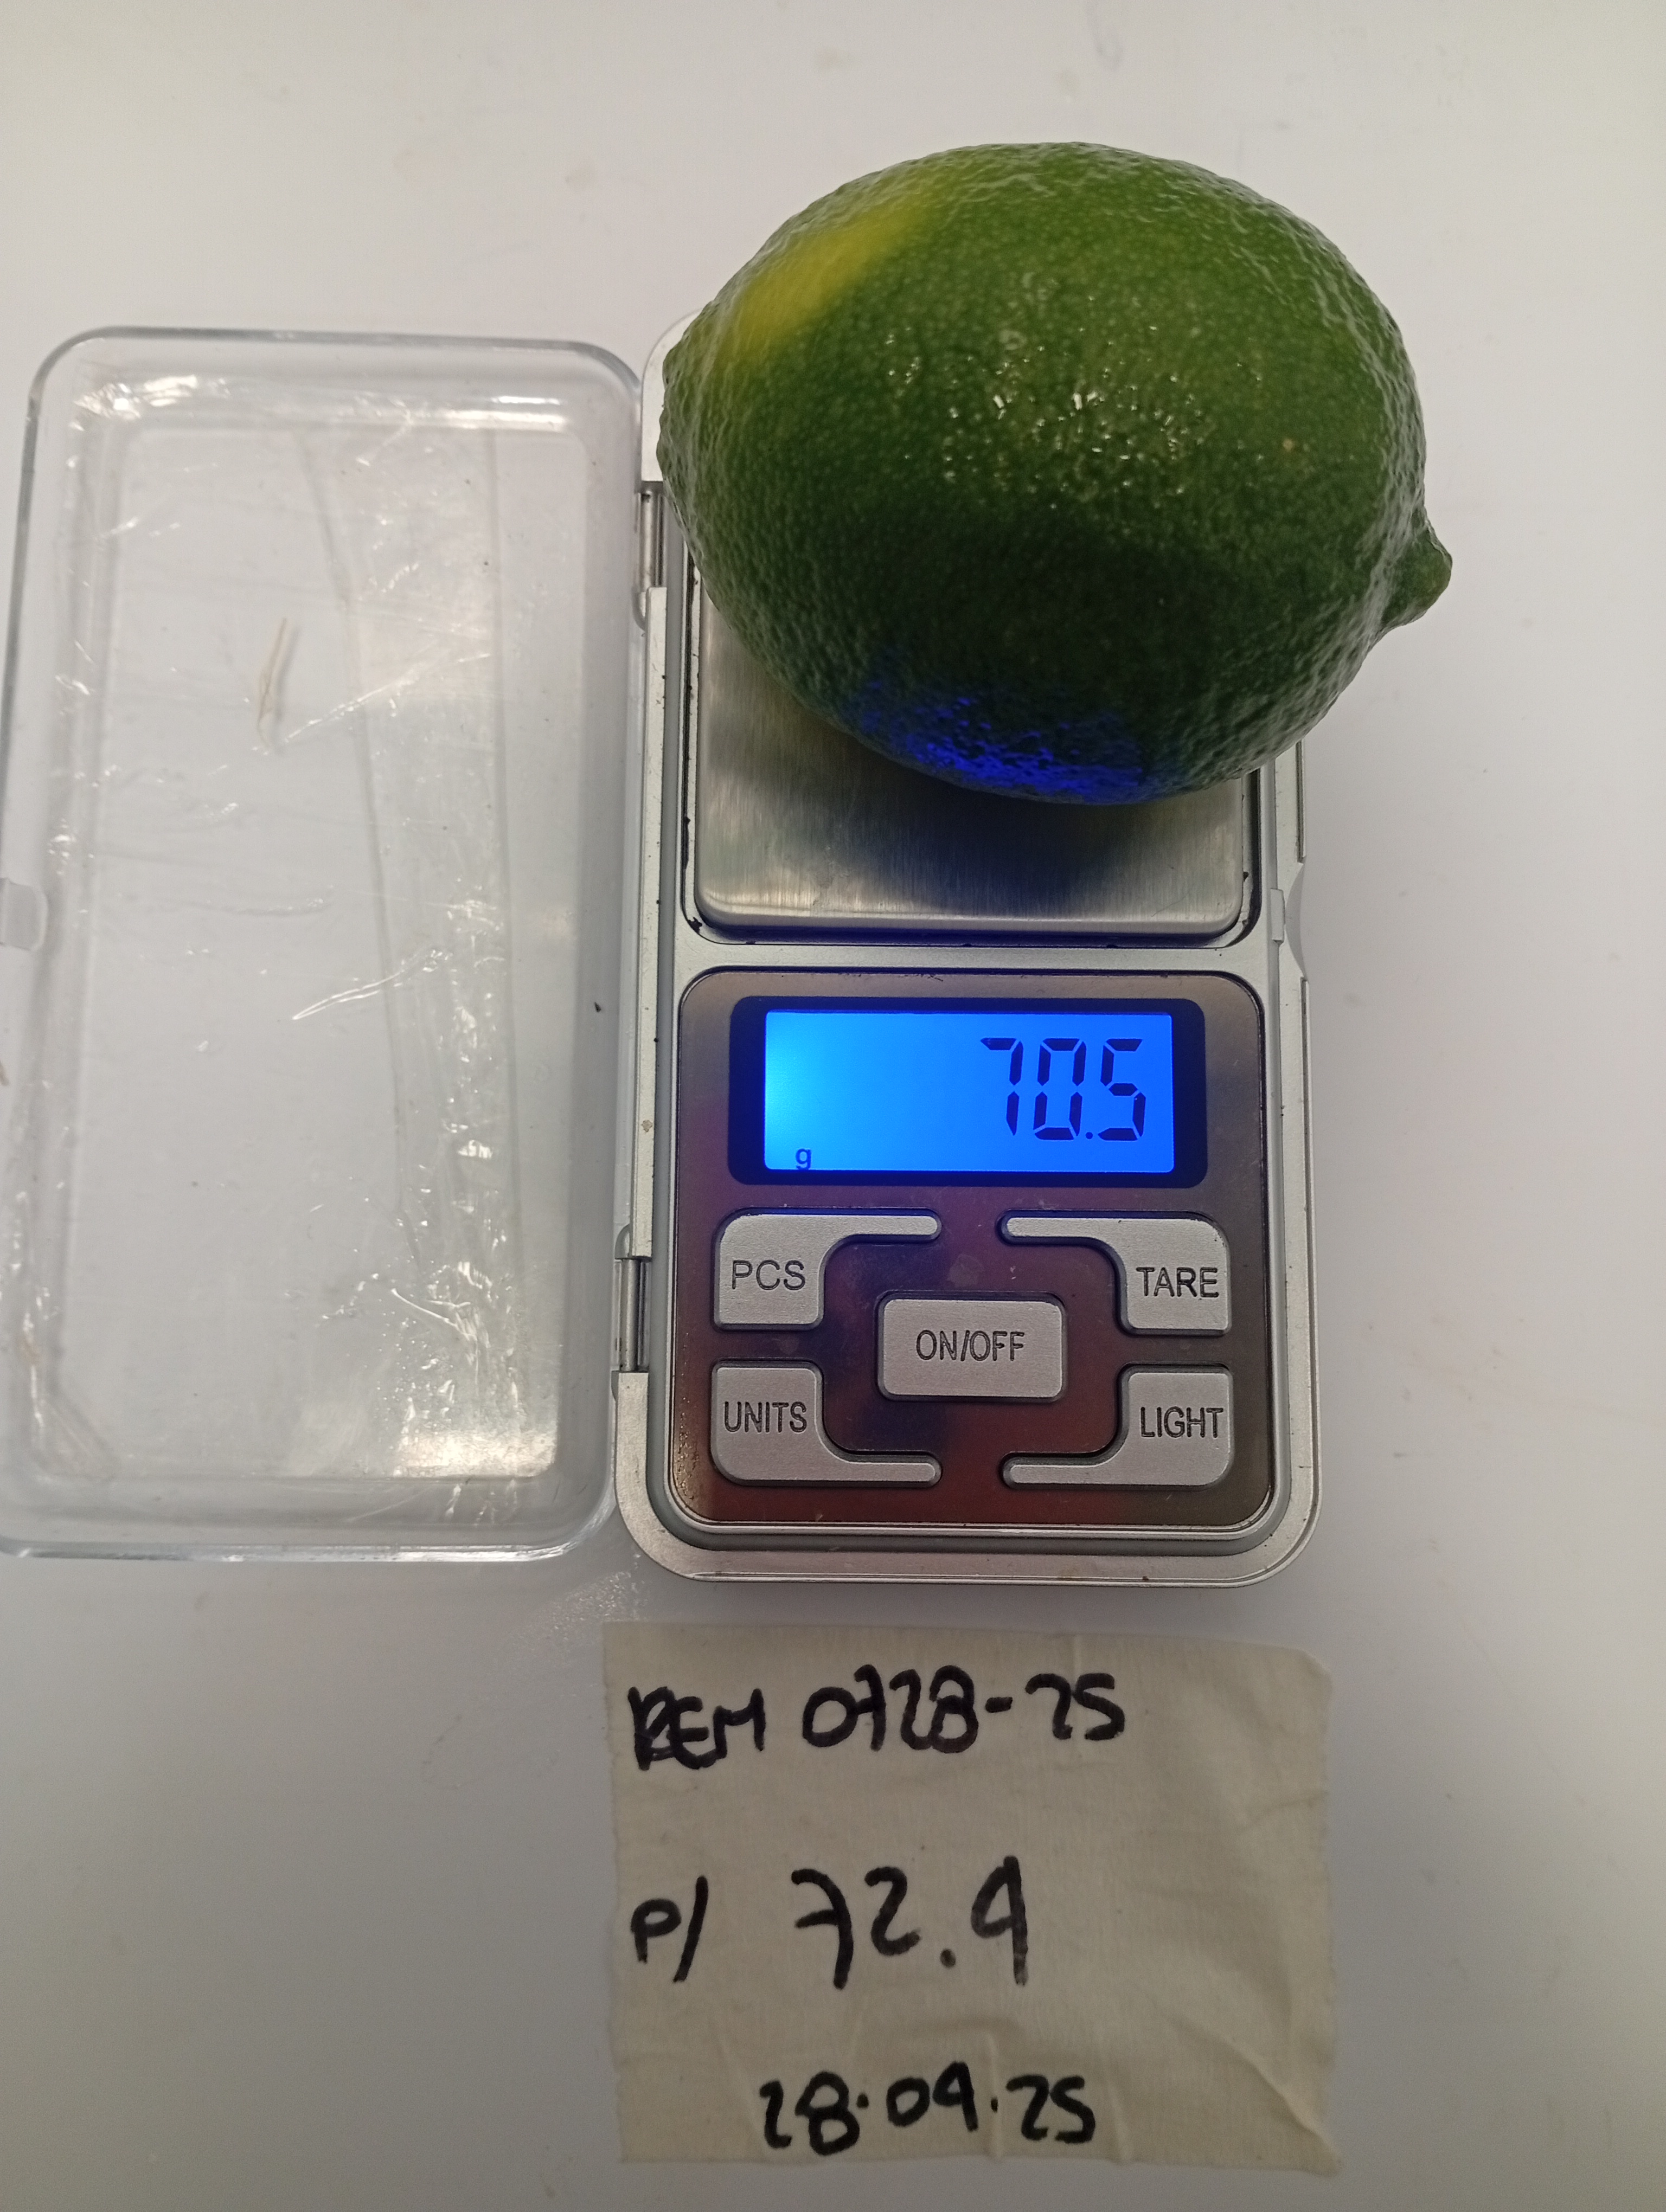 70.5
g
PCS
TARE
ON/OFF
UNITS
LIGHT
REM 0728-25
P/ 72.9
28.09.25